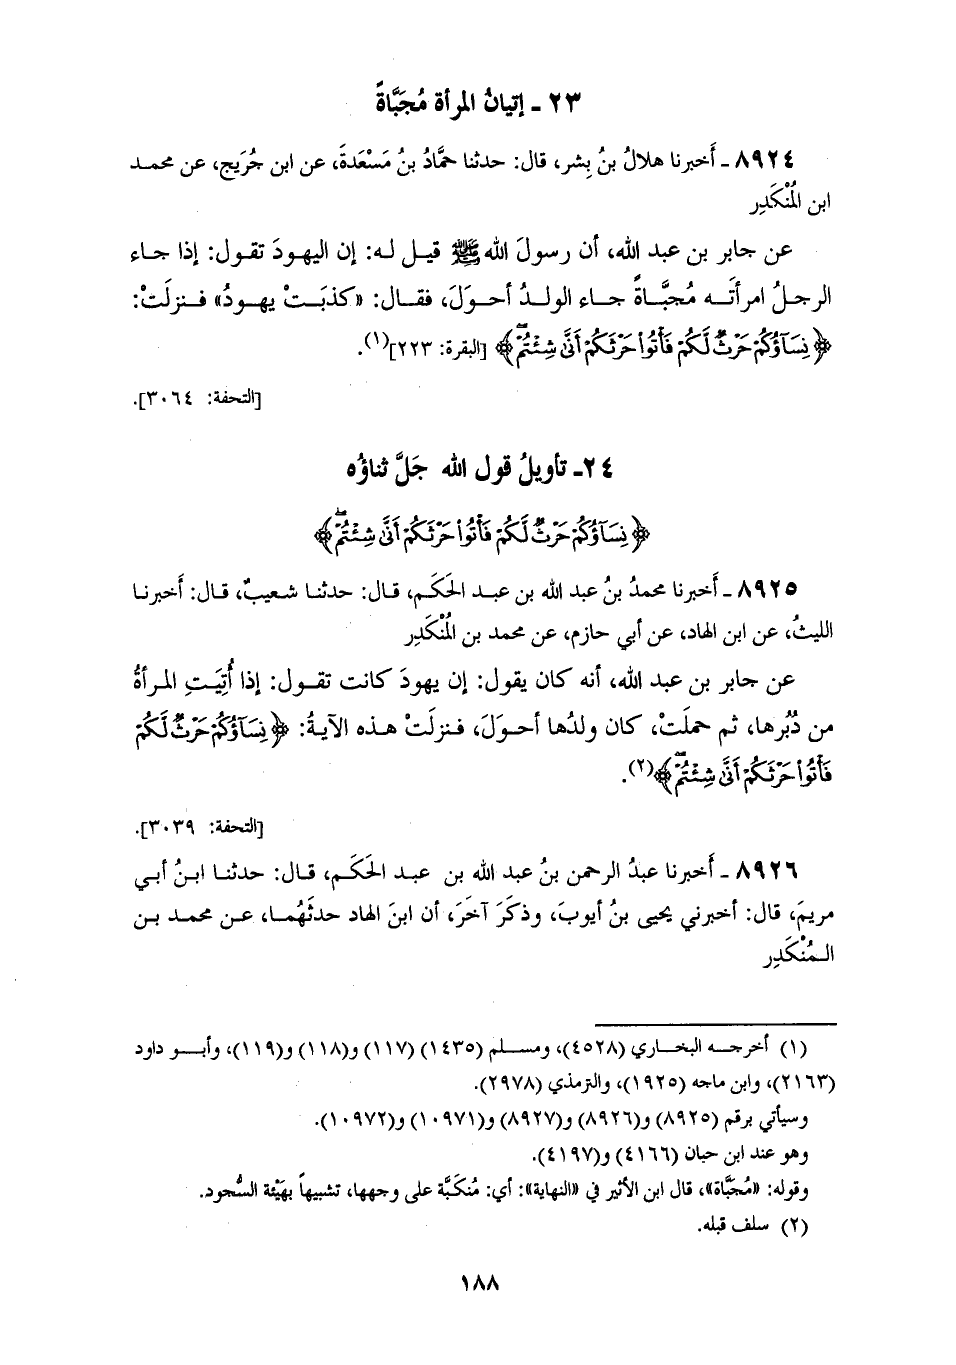 ٢٣ ـ إتيانُ المرأة مُجَبَّاةً
٨٩٢٤ ـ أَخبرنا هلالُ بنُ بِشر، قال: حدثنا حمَّادُ بنُ مَسْعَدةَ، عن ابن جُرَيج، عن محمد
ابن المُنْكَدِر
عن جابر بن عبد الله، أن رسولَ الله ﷺ قيل له: إن اليهودَ تقول: إذا جاء
الرجلُ امرأتَه مُجبَّاةً جاء الولدُ أحوَلَ، فقال: «كذبَتْ يهودُ» فنزلَتْ:
﴿نِسَآؤُكُمْ حَرْثٌ لَّكُمْ فَأْتُوا۟ حَرْثَكُمْ أَنَّىٰ شِئْتُمْ ۖ﴾ [البقرة: ٢٢٣](١).
[التحفة: ٣٠٦٤].
٢٤ـ تأويلُ قول الله جَلَّ ثناؤُه
﴿نِسَآؤُكُمْ حَرْثٌ لَّكُمْ فَأْتُوا۟ حَرْثَكُمْ أَنَّىٰ شِئْتُمْ ۖ﴾
٨٩٢٥ ـ أَخبرنا محمدُ بنُ عبد الله بن عبد الحَكَم، قال: حدثنا شعيبٌ، قال: أَخبرنا
الليثُ، عن ابن الهاد، عن أبي حازم، عن محمد بن المُنْكَدِر
عن جابر بن عبد الله، أنه كان يقول: إن يهودَ كانت تقول: إذا أُتِيَتِ المرأةُ
من دُبُرها، ثم حملَتْ، كان ولدُها أحوَلَ، فنزلَتْ هذه الآيةُ: ﴿نِسَآؤُكُمْ حَرْثٌ لَّكُمْ
فَأْتُوا۟ حَرْثَكُمْ أَنَّىٰ شِئْتُمْ ۖ﴾(٢).
[التحفة: ٣٠٣٩].
٨٩٢٦ ـ أَخبرنا عبدُ الرحمن بنُ عبد الله بن عبد الحَكَم، قال: حدثنا ابنُ أبي
مريمَ، قال: أخبرني يحيى بنُ أيوبَ، وذكَرَ آخَرَ، أن ابنَ الهاد حدثَهُما، عن محمد بن
المُنْكَدِر
(١) أخرجه البخاري (٤٥٢٨)، ومسلم (١٤٣٥) (١١٧) و(١١٨) و(١١٩)، وأبو داود
(٢١٦٣)، وابن ماجه (١٩٢٥)، والترمذي (٢٩٧٨).
وسيأتي برقم (٨٩٢٥) و(٨٩٢٦) و(٨٩٢٧) و(١٠٩٧١) و(١٠٩٧٢).
وهو عند ابن حبان (٤١٦٦) و(٤١٩٧).
وقوله: «مُجَبَّاة»، قال ابن الأثير في «النهاية»: أي: مُنكَبَّة على وجهها، تشبيهاً بهَيْئة السُّجود.
(٢) سلف قبله.
١٨٨